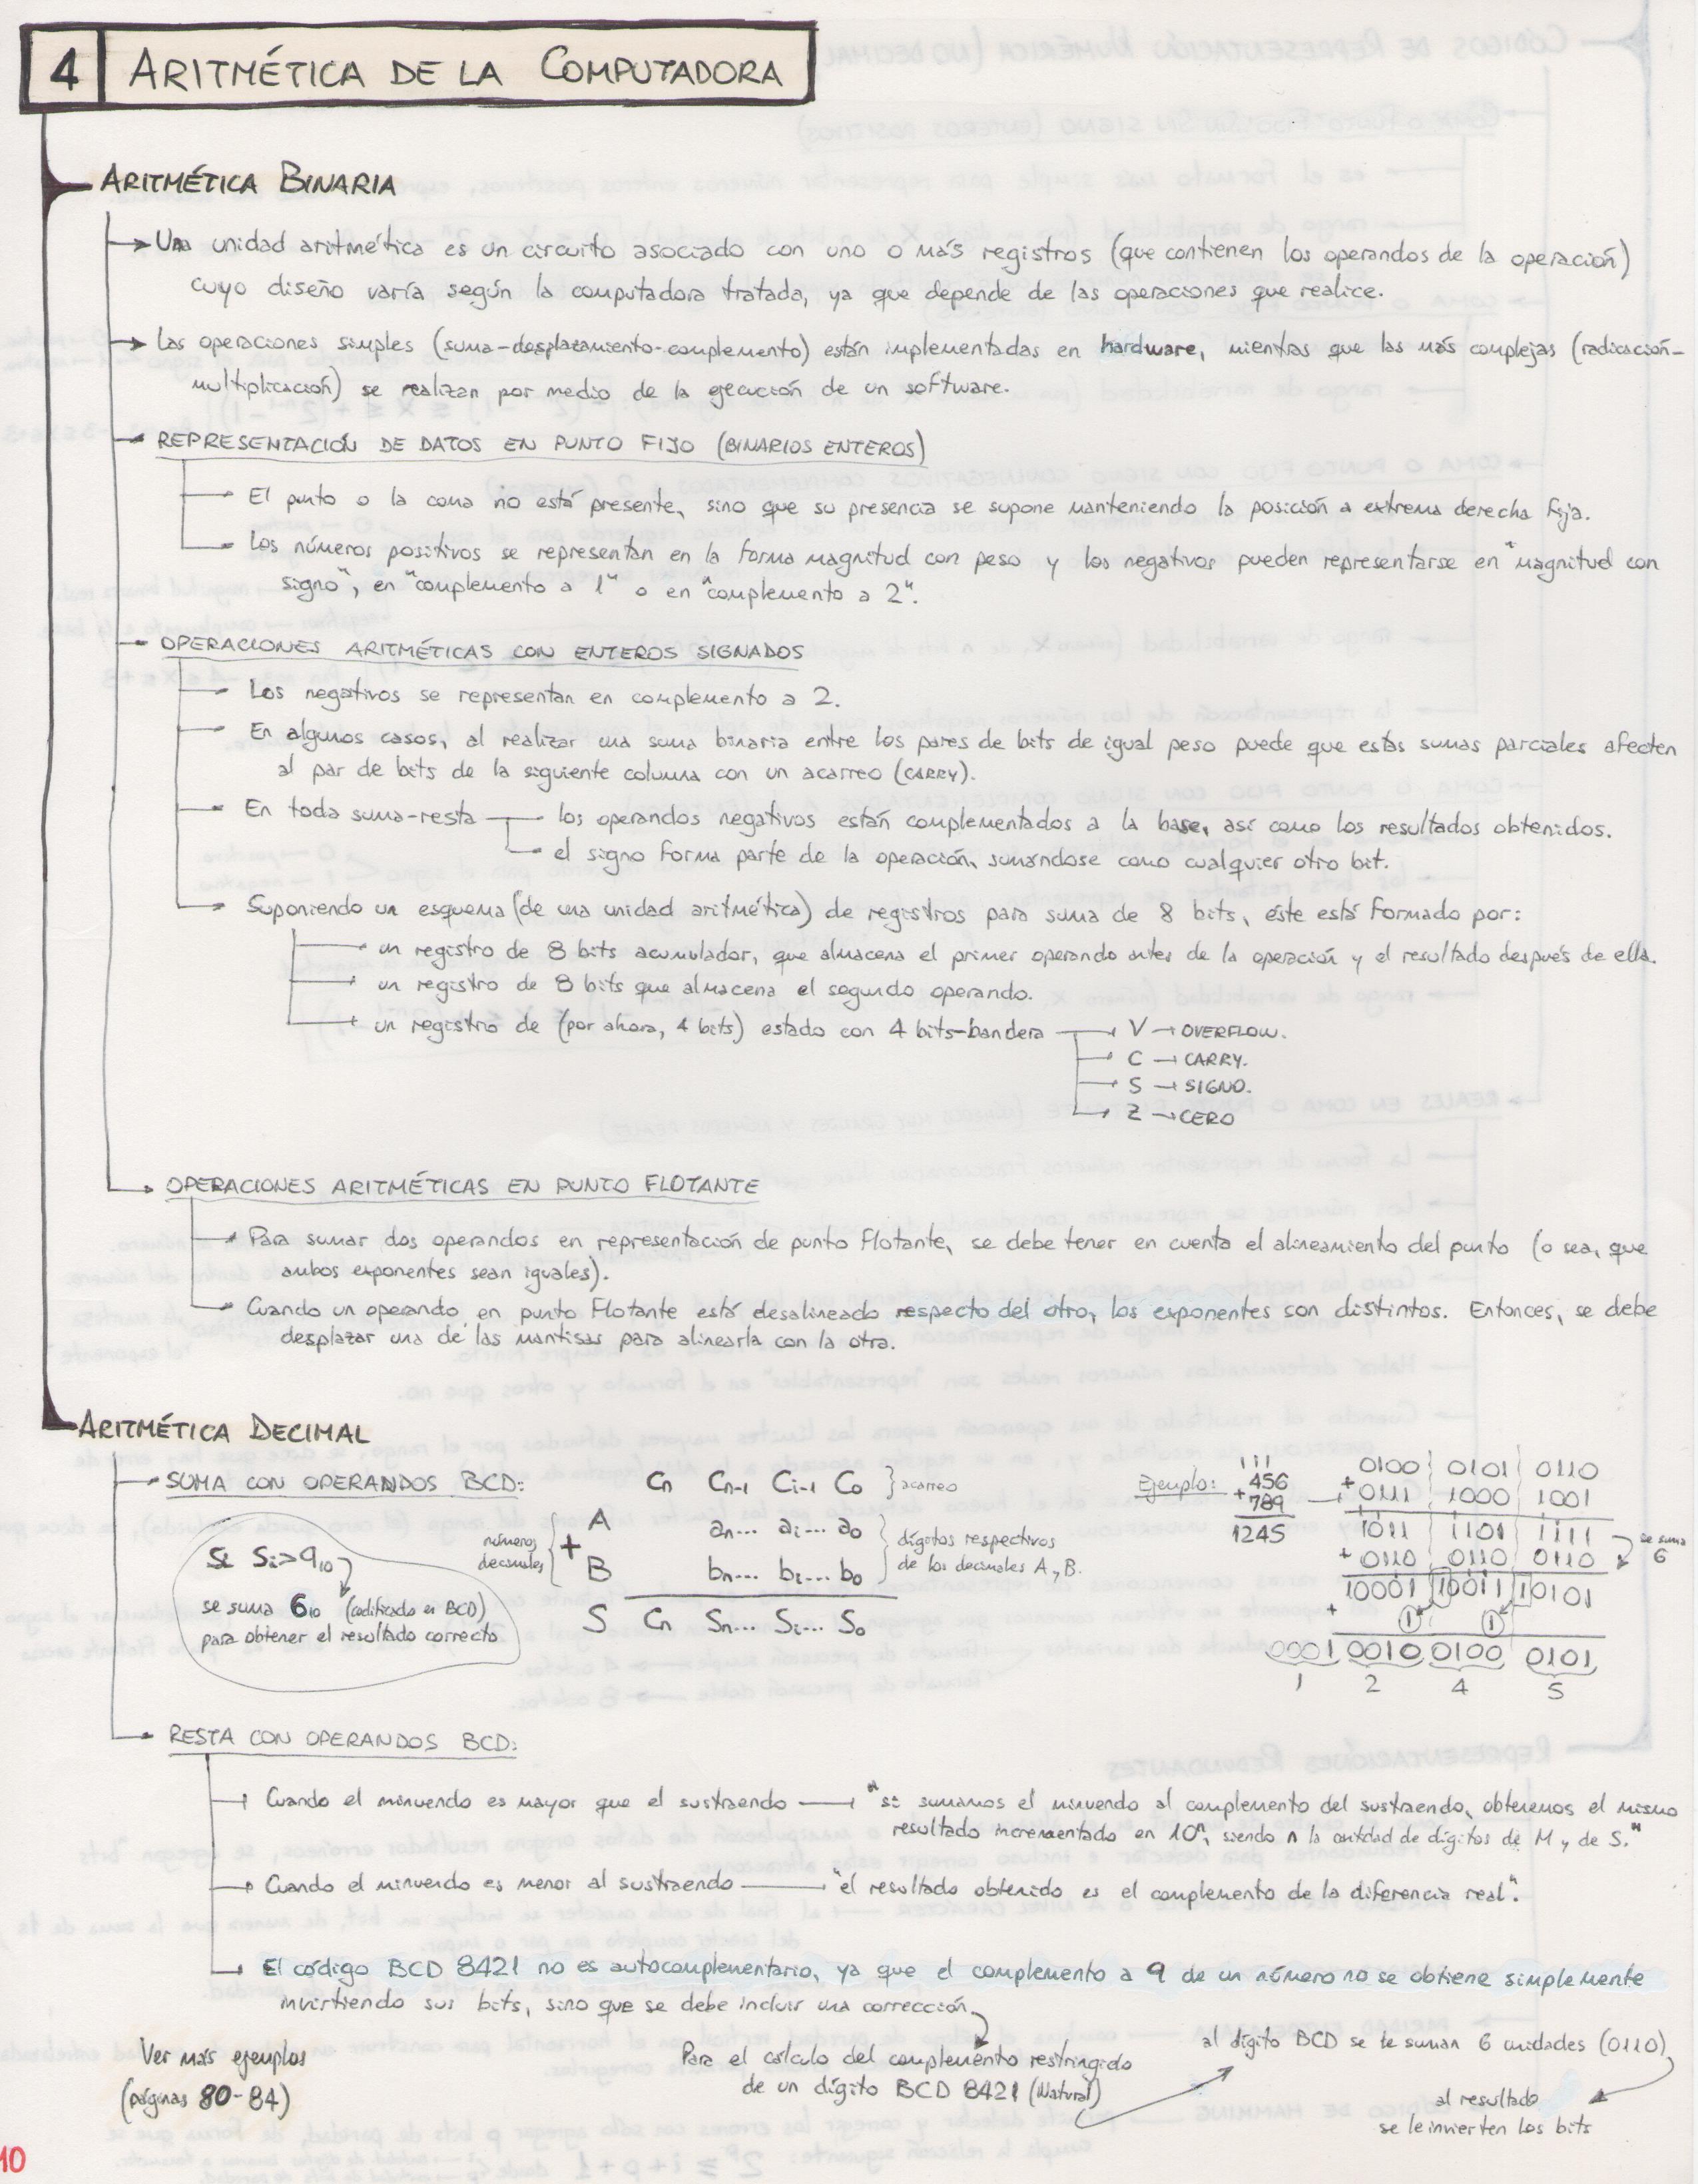 4 ARITMÉTICA DE LA COMPUTADORA
ARITMÉTICA BINARIA
Una unidad aritmética es un circuito asociado con uno o más registros (que contienen los operandos de la operación)
cuyo diseño varía según la computadora tratada, ya que depende de las operaciones que realice.
Las operaciones simples (suma-desplazamiento-complemento) están implementadas en hardware, mientras que las más complejas (radicación-
multiplicación) se realizan por medio de la ejecución de un software.
REPRESENTACIÓN DE DATOS EN PUNTO FIJO (BINARIOS ENTEROS)
El punto o la coma no está presente, sino que su presencia se supone manteniendo la posición a extrema derecha fija.
Los números positivos se representan en la forma magnitud con peso y los negativos pueden representarse en "magnitud con
signo", en "complemento a 1" o en "complemento a 2".
OPERACIONES ARITMÉTICAS CON ENTEROS SIGNADOS
Los negativos se representan en complemento a 2.
En algunos casos, al realizar una suma binaria entre los pares de bits de igual peso puede que estas sumas parciales afecten
al par de bits de la siguiente columna con un acarreo (CARRY).
En toda suma-resta → los operandos negativos están complementados a la base, así como los resultados obtenidos.
→ el signo forma parte de la operación, sumándose como cualquier otro bit.
Suponiendo un esquema (de una unidad aritmética) de registros para suma de 8 bits, éste está formado por:
un registro de 8 bits acumulador, que almacena el primer operando antes de la operación y el resultado después de ella.
un registro de 8 bits que almacena el segundo operando.
un registro de (por ahora, 4 bits) estado con 4 bits-bandera → V → OVERFLOW.
C → CARRY.
S → SIGNO.
Z → CERO
OPERACIONES ARITMÉTICAS EN PUNTO FLOTANTE
Para sumar dos operandos en representación de punto flotante, se debe tener en cuenta el alineamiento del punto (o sea, que
ambos exponentes sean iguales).
Cuando un operando en punto flotante está desalineado respecto del otro, los exponentes son distintos. Entonces, se debe
desplazar una de las mantisas para alinearla con la otra.
ARITMÉTICA DECIMAL
SUMA CON OPERANDOS BCD:
Cn Cn-1 Ci-1 C0 } acarreo
números decimales { + A an... ai... a0 } dígitos respectivos
B bn... bi... b0 de los decimales A y B.
S Cn Sn... Si... S0
Si Si>9₁₀
se suma 6₁₀ (codificado en BCD)
para obtener el resultado correcto
Ejemplo: 111
456
+789
1245
0100 0101 0110
+ 0111 1000 1001
1011 1101 1111
+ 0110 0110 0110
se suma 6
10001 10011 10101
+ 1 1
0001 0010 0100 0101
1 2 4 5
RESTA CON OPERANDOS BCD:
Cuando el minuendo es mayor que el sustraendo → "si sumamos el minuendo al complemento del sustraendo, obtenemos el mismo
resultado incrementado en 10ⁿ, siendo n la cantidad de dígitos de M y de S."
Cuando el minuendo es menor al sustraendo → "el resultado obtenido es el complemento de la diferencia real".
El código BCD 8421 no es autocomplementario, ya que el complemento a 9 de un número no se obtiene simplemente
invirtiendo sus bits, sino que se debe incluir una corrección
Para el cálculo del complemento restringido
de un dígito BCD 8421 (Natural)
al dígito BCD se le suman 6 unidades (0110)
al resultado
se le invierten los bits
Ver más ejemplos
(páginas 80-84)
10